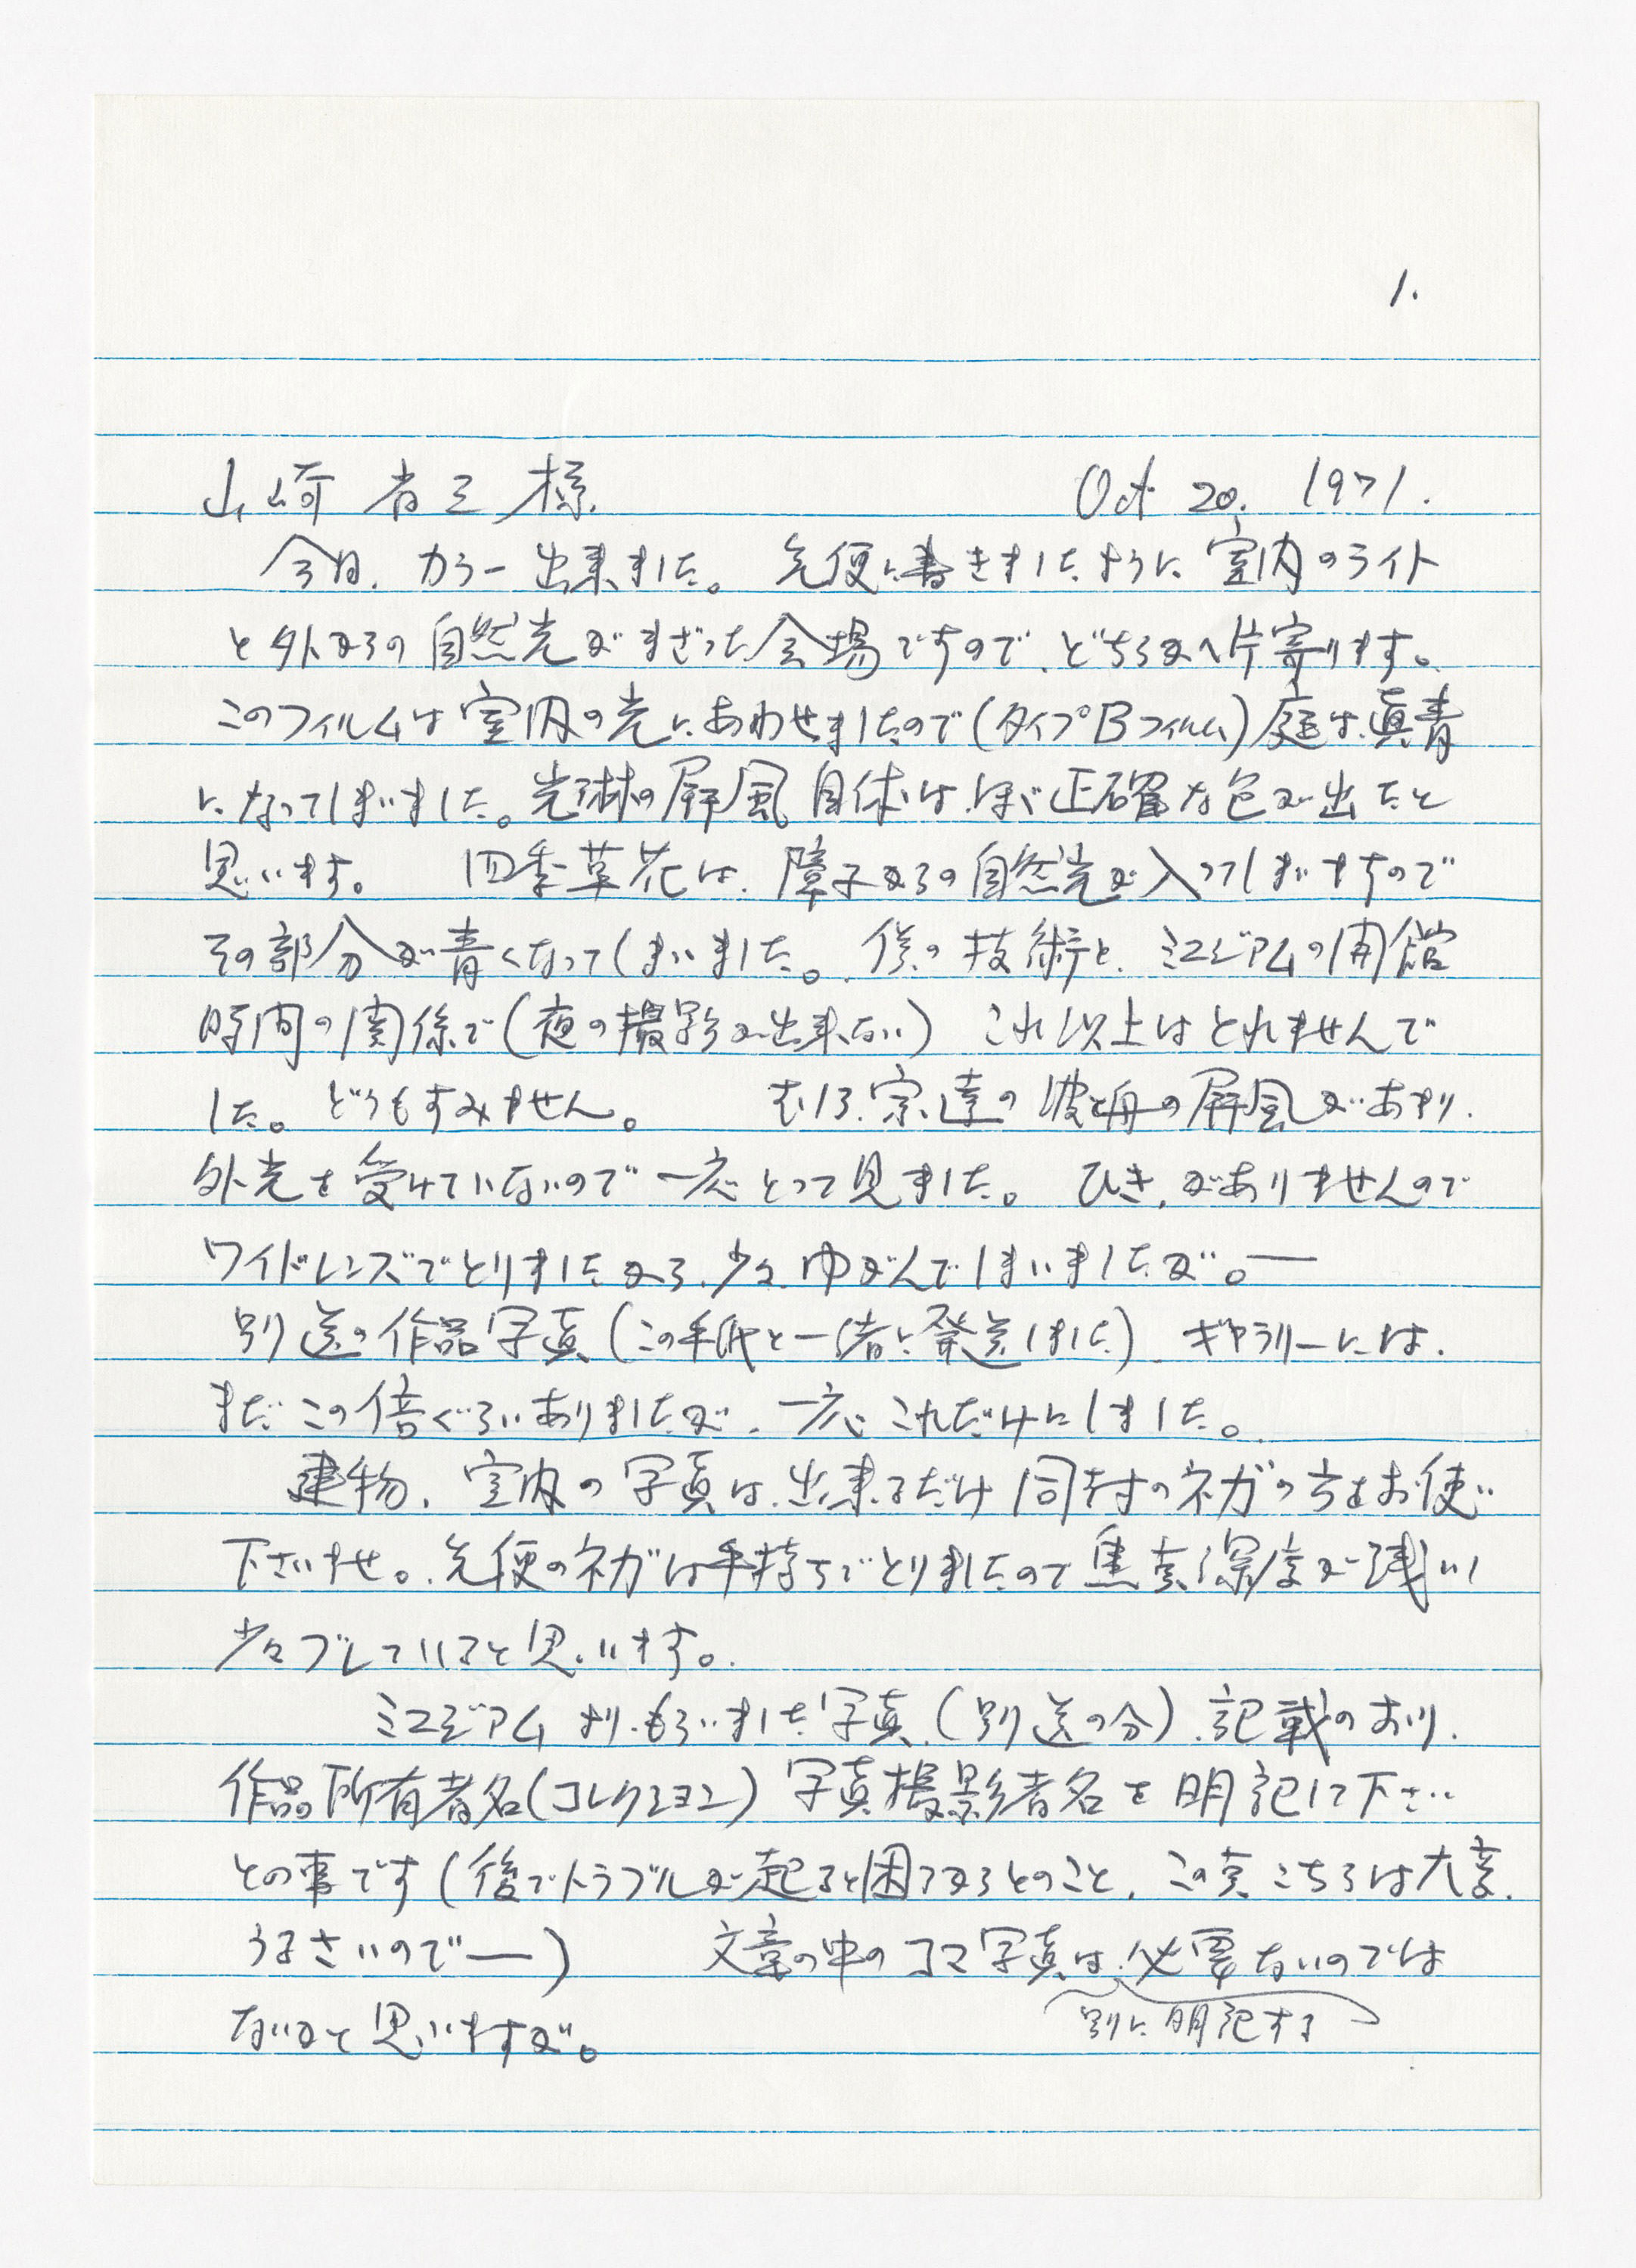 1.
山崎省三様. Oct 20. 1971.
今日、カラー出来ました。先便に書きましたように室内のライト
と外からの自然光がまざった会場ですので、どちらかへ片寄ります。
このフィルムは室内の光にあわせましたので(タイプBフィルム)庭は真青
になってしまいました。光琳の屏風自体は、ほゞ正確な色が出たと
思います。 四季草花は、障子からの自然光が入ってしまいますので
その部分が青くなってしまいました。僕の技術と、ミュジアムの開館
時間の関係で(夜の撮影が出来ない) これ以上はとれませんで
した。どうもすみません。 むしろ、宗達の波と舟の屏風があり、
外光を受けていないので一応とって見ました。 ひき、がありませんので
ワイドレンズでとりましたから、少々ゆがんでしまいましたが。—
別送の作品写真(この手紙と一緒に発送しました)、ギャラリーには、
まだこの倍ぐらいありましたが、一応これだけにしました。
建物、室内の写真は、出来るだけ同封のネガの方をお使い
下さいませ。先便のネガは手持ちでとりましたので焦点深度が浅いし
少々ブレていると思います。
ミュジアムより、もらいました写真、(別送の分)、記載のおり、
作品所有者名(コレクション)写真撮影者名を明記して下さい
との事です(後でトラブルが起ると困るからとのこと、この点こちらは大変、
うるさいので—) 文章の中のコマ写真は、必要ないのでは
別に明記する
ないかと思いますが。